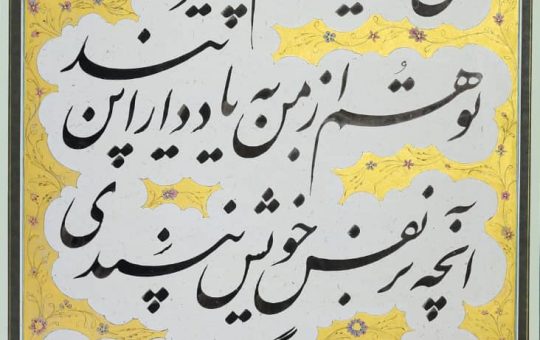 تو هم از من به یاد دار این پند
آنچه بر نفس خویش نپسندی